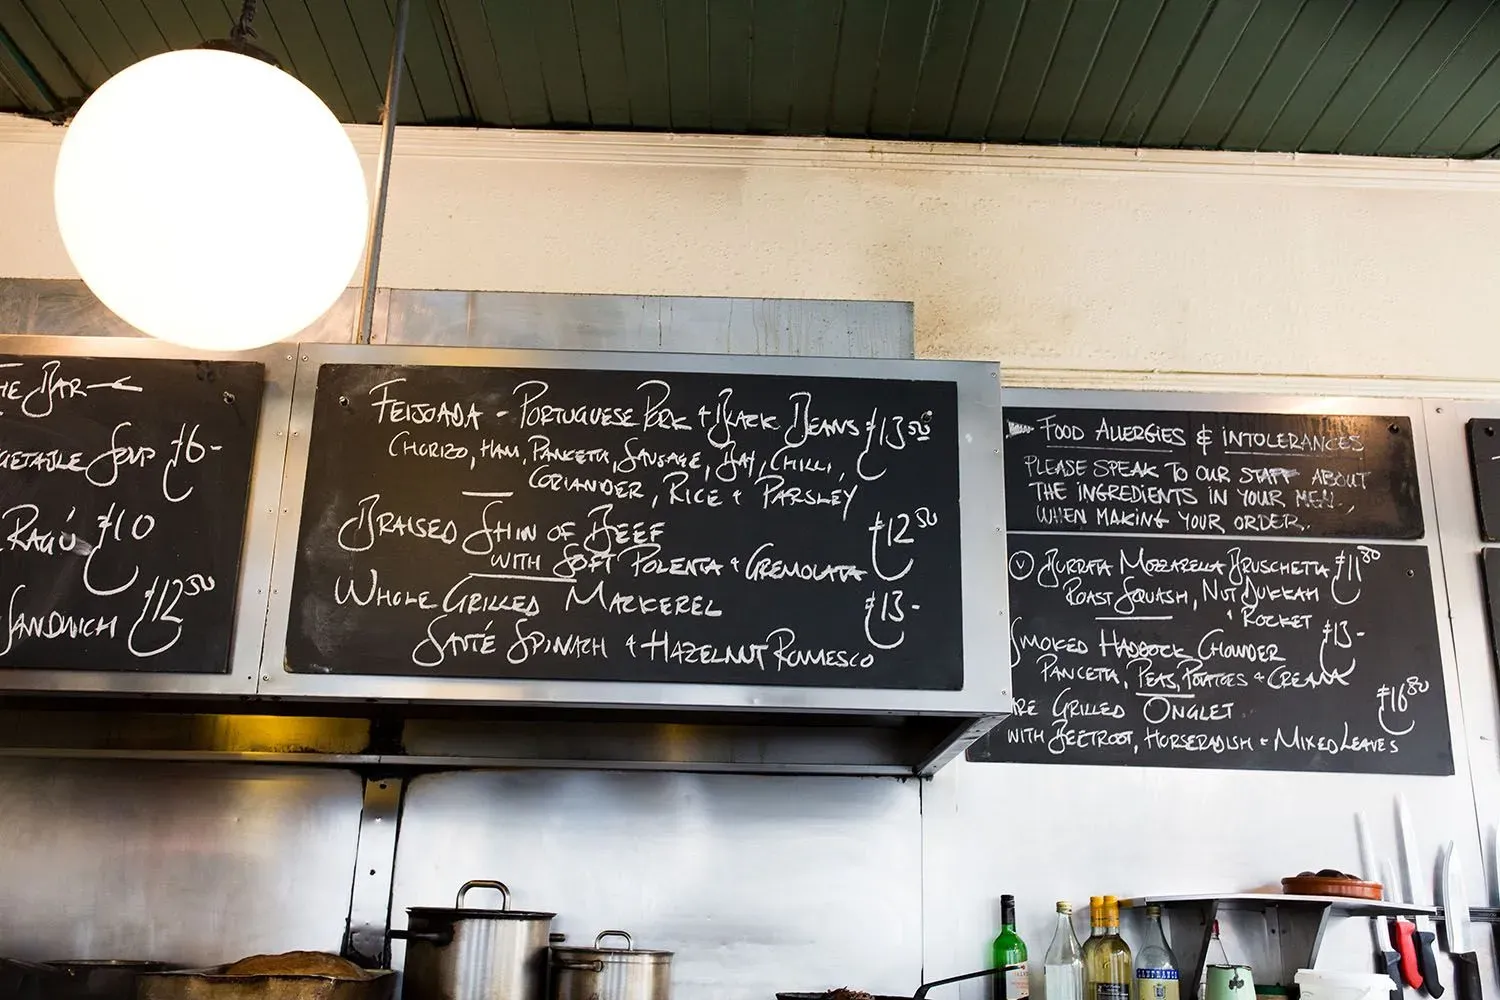 THE BAR
VEGETABLE SOUP £6-
RAGÚ £10
SANDWICH £12 50
FEIJOADA - PORTUGUESE PORK + BLACK BEANS £13 50
CHORIZO, HAM, PANCETTA, SAUSAGE, BAY, CHILLI,
CORIANDER, RICE + PARSLEY
BRAISED SHIN OF BEEF £12 50
WITH SOFT POLENTA + GREMOLATA
WHOLE GRILLED MACKEREL £13-
SAUTÉ SPINACH + HAZELNUT ROMESCO
FOOD ALLERGIES & INTOLERANCES
PLEASE SPEAK TO OUR STAFF ABOUT
THE INGREDIENTS IN YOUR MEAL,
WHEN MAKING YOUR ORDER.
V BURRATA MOZZARELLA BRUSCHETTA £11 80
ROAST SQUASH, NUT DUKKAH
+ ROCKET
SMOKED HADDOCK CHOWDER £13-
PANCETTA, PEAS, POTATOES + CREAM
RARE GRILLED ONGLET £16 80
WITH BEETROOT, HORSERADISH + MIXED LEAVES